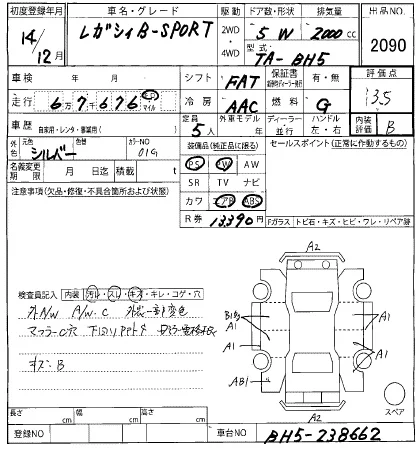 初度登録年月 車名・グレード 駆動 ドア数・形状 排気量 出品NO.
14/12月 レガシィB-SPORT 2WD 4WD 5W 2000cc 2090
型式 TA-BH5
車検 年 月 シフト FAT 保証書 有・無 評価点
走行 6万7千676 キロ マイル 冷房 AAC 燃料 G 3.5
車歴 自家用・レンタ・事業用( ) 定員 5人 外車モデル 年 ディーラー・並行 ハンドル 左・右 内装評価 B
外色 元色 シルバー 色替 カラーNO 01G 装備品(純正品に限る) セールスポイント(正常に作動するもの)
名義変更期限 月 日迄 積載 t PS PW AW
SR TV ナビ
注意事項(欠品・修復・不具合箇所および状態) カワ エアB ABS
R券 13,390円 Fガラス トビ石・キズ・ヒビ・ワレ・リペア跡
A2
検査員記入 内装 汚レ・スレ・キズ・キレ・コゲ・穴
A/W C
A1 A1
A1 A1
キズ・B
AB1
A2
スペア
長さ cm 幅 cm 高さ cm
登録NO 車台NO BH5-238662